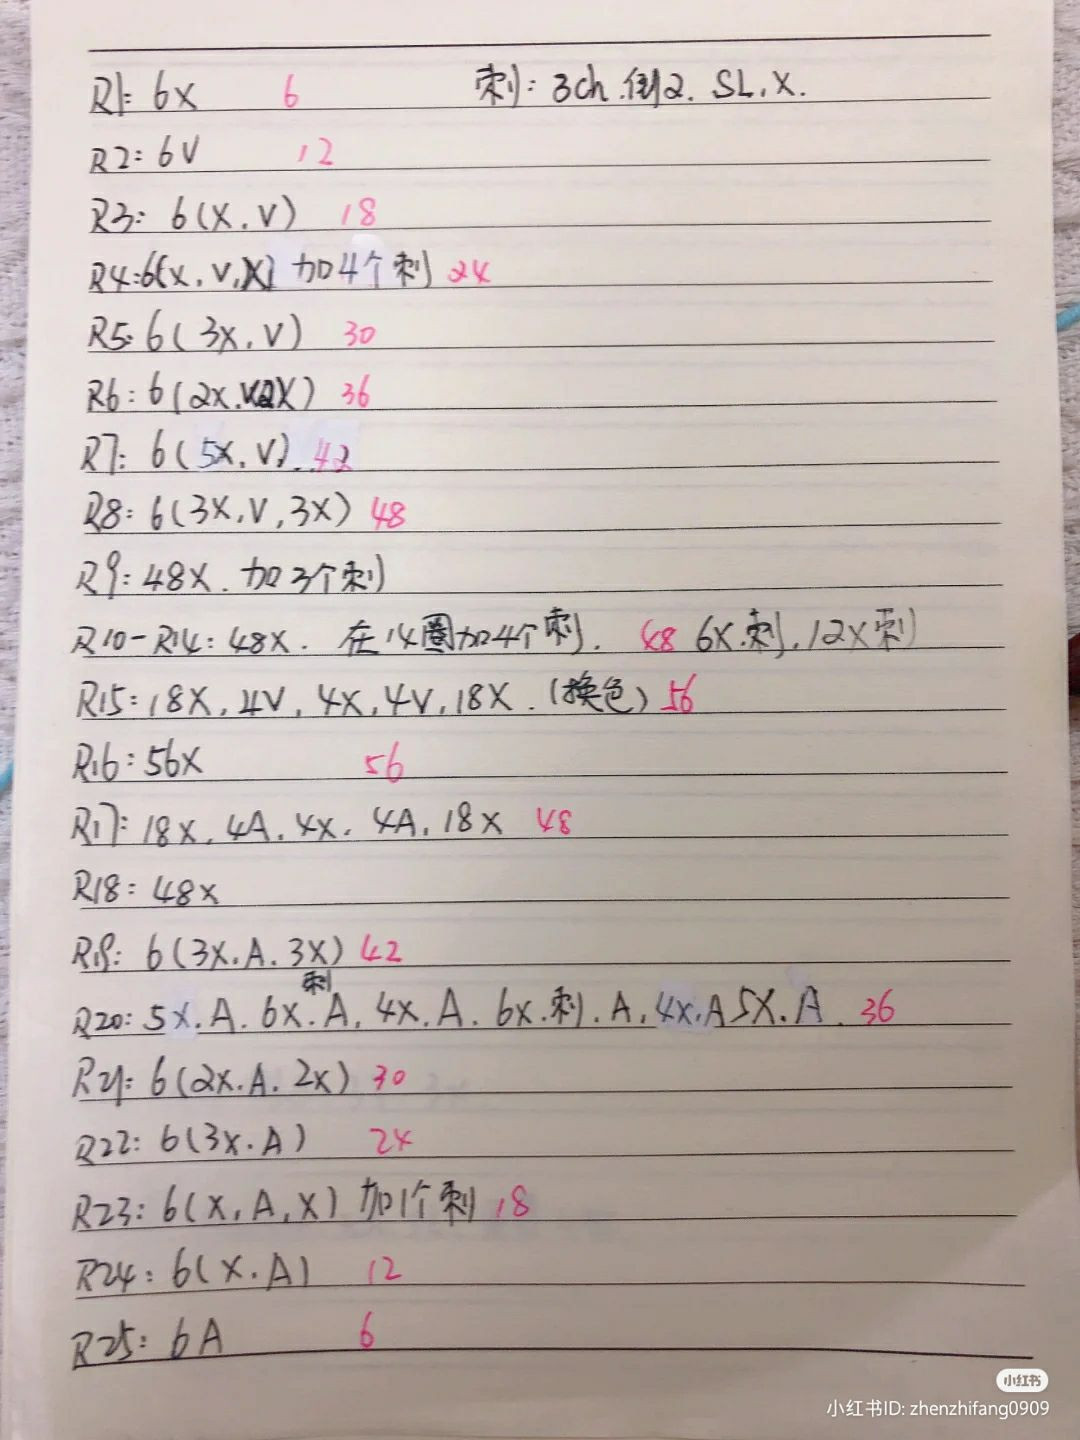 R1: 6X 6 刺: 3ch.倒2. SL, X.
R2: 6V 12
R3: 6(X, V) 18
R4: 6(X, V, X) 加4个刺 24
R5: 6(3X, V) 30
R6: 6(2X.V2X) 36
R7: 6(5X, V). 42
R8: 6(3X, V, 3X) 48
R9: 48X. 加3个刺
R10-R14: 48X. 在14圈加4个刺. 48 6X.刺, 12X刺
R15: 18X, 4V, 4X, 4V, 18X. (换色) 56
R16: 56X 56
R17: 18X, 4A. 4X. 4A. 18X 48
R18: 48X
R19: 6(3X.A.3X) 42
刺
R20: 5X.A. 6X.A. 4X.A. 6X.刺.A. 4X.A 5X.A. 36
R21: 6(2X.A.2X) 30
R22: 6(3X.A) 24
R23: 6(X, A, X) 加1个刺 18
R24: 6(X.A) 12
R25: 6A 6
小红书
小红书ID: zhenzhifang0909